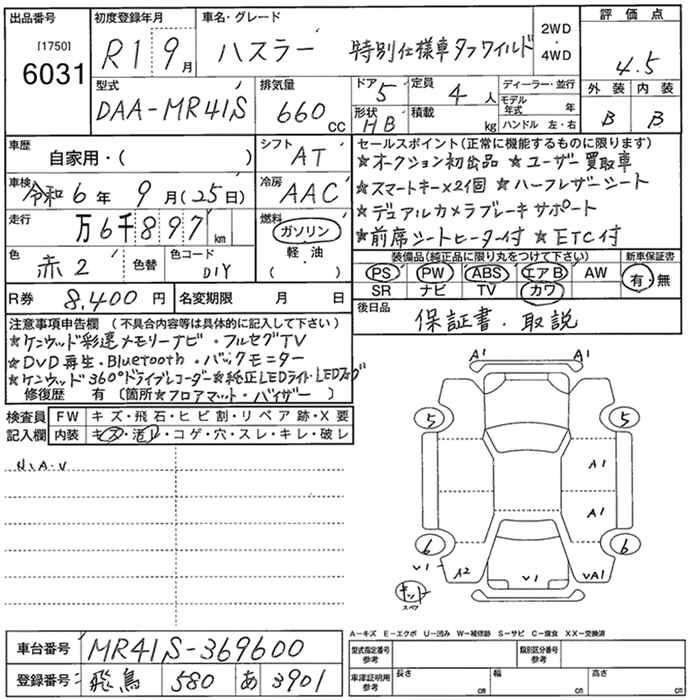 出品番号 [1750] 6031
初度登録年月 R1 9月
車名・グレード ハスラー 特別仕様車タフワイルド
2WD・4WD
評価点 4.5
外装 内装
B B
型式 DAA-MR41S
排気量 660 CC
ドア 5
定員 4人
形状 HB
積載 kg
ディーラー・並行
モデル年式 年
ハンドル 左・右
車歴 自家用・( )
シフト AT
車検 令和6年9月(25日)
冷房 AAC
走行 万6千897km
燃料 ガソリン・軽油( )
色 赤2 色替
色コード DIY
R券 8,400円
名変期限 月 日
セールスポイント(正常に機能するものに限ります)
☆オークション初出品 ☆ユーザー買取車
☆スマートキー×2個 ☆ハーフレザーシート
☆デュアルカメラブレーキサポート
☆前席シートヒーター付 ☆ETC付
装備品(純正品に限り丸をつけて下さい) 新車保証書
PS PW ABS エアB AW 有・無
SR ナビ TV カワ
後日品 保証書・取説
注意事項申告欄(不具合内容等は具体的に記入して下さい)
☆ケンウッド彩速メモリーナビ・フルセグTV
☆DVD再生・Bluetooth・バックモニター
☆ケンウッド360°ドライブレコーダー☆純正LEDライト・LEDフォグ
修復歴 有(箇所☆フロアマット・バイザー)
検査員記入欄
FW キズ・飛石・ヒビ割・リペア跡・X要
内装 キズ・汚レ・コゲ・穴・スレ・キレ・破レ
N.A.V
A1 A1
5 5
A1
A1
6 6
V1 A2 V1 VA1
キット
スペア
A−キズ E−エクボ U−凹み W−補修跡 S−サビ C−腐食 XX−交換済
車台番号 MR41S-369600
登録番号 飛鳥 580 あ 3901
型式指定番号 参考
類別区分番号 参考
車庫証明用 参考 長さ cm 幅 cm 高さ cm